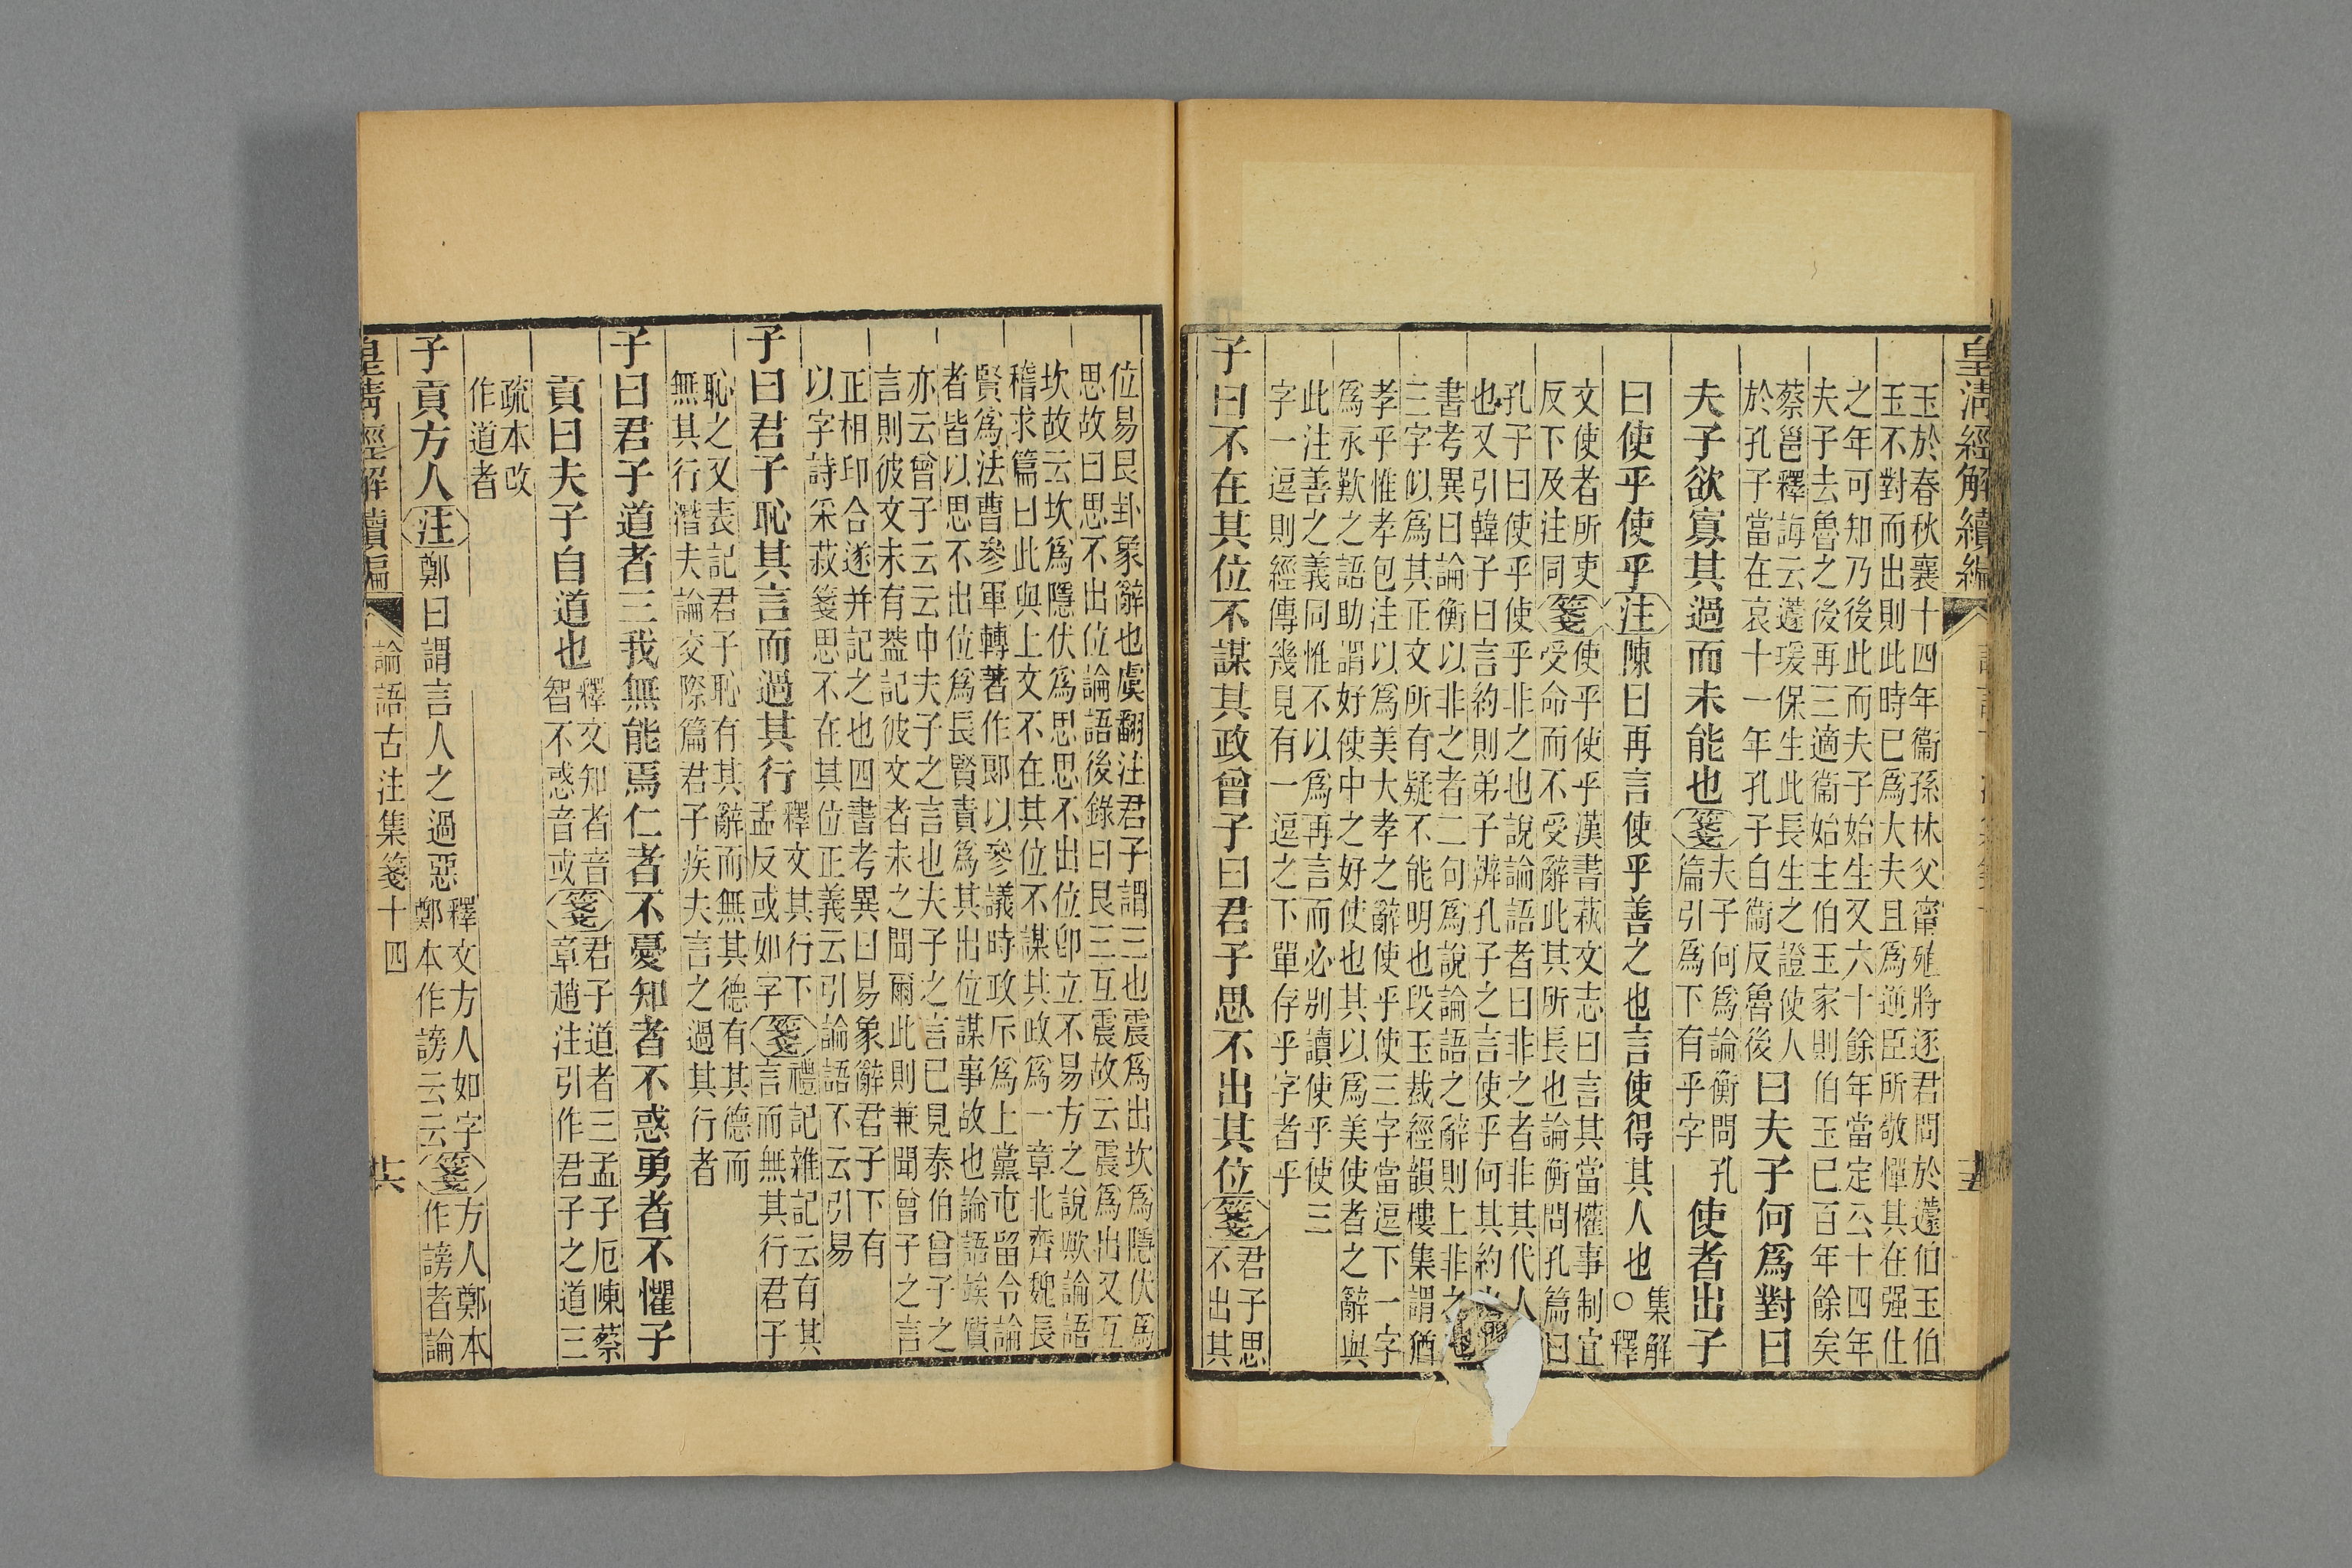 皇淸經解續編
玉於春秋襄十四年衞孫林父甯殖將逐君問於蘧伯玉伯
玉不對而出則此時已爲大夫且爲逆臣所敬憚其在强仕
之年可知乃後此而夫子始生又六十餘年當定公十四年
夫子去魯之後再三適衞始主伯玉家則伯玉已百年餘矣
蔡邕釋誨云蘧瑗保生此長生之證使人
於孔子當在哀十一年孔子自衞反魯後
曰夫子何爲對曰
夫子欲寡其過而未能也箋
夫子何爲論衡問孔
篇引爲下有乎字
使者出子
曰使乎使乎注陳曰再言使乎善之也言使得其人也
集解
○釋
文使者所吏
反下及注同
箋
使乎使乎漢書蓺文志曰言其當權事制宜
受命而不受辭此其所長也論衡問孔篇曰
孔子曰使乎使乎非之也說論語者曰非之者非其代人
也又引韓子曰言約則弟子辨孔子之言使乎何其約
書考異曰論衡以非之者二句爲說論語之辭則上非
三字似爲其正文所有疑不能明也段玉裁經韻樓集謂猶
孝乎惟孝包注以爲美大孝之辭使乎使三字當逗下一字
爲永歎之語助謂好使中之好使也其以爲美使者之辭與
此注善之義同惟不以爲再言而必別讀使乎使三
字一逗則經傳幾見有一逗之下單存乎字者乎
子曰不在其位不謀其政曾子曰君子思不出其位箋
君子思
不出其
位易艮卦象辭也虞翻注君子謂三也震爲出坎爲隱伏爲
思故曰思不出位論語後錄曰艮三互震故云震爲出又互
坎故云坎爲隱伏爲思思不出位卽立不易方之說歟論語
稽求篇曰此與上文不在其位不謀其政爲一章北齊魏長
賢爲法曹參軍轉著作郞以參議時政斥爲上黨屯留令論
者皆以思不出位爲長賢責爲其出位謀事故也論語竢質
亦云曾子云云申夫子之言也夫子之言已見泰伯曾子之
言則彼文未有葢記彼文者未之聞爾此則兼聞曾子之言
正相印合遂并記之也四書考異曰易象辭君子下有
以字詩采菽箋思不在其位正義云引論語不云引易
子曰君子恥其言而過其行
釋文其行下
孟反或如字
箋
禮記雜記云有其
言而無其行君子
恥之又表記君子恥有其辭而無其德有其德而
無其行潛夫論交際篇君子疾夫言之過其行者
子曰君子道者三我無能焉仁者不憂知者不惑勇者不懼子
貢曰夫子自道也
釋文知者音
智不惑音或
箋
君子道者三孟子厄陳蔡
章趙注引作君子之道三
疏本改
作道者
子貢方人注鄭曰謂言人之過惡
釋文方人如字
鄭本作謗云云
箋
方人鄭本
作謗者論
皇淸經解續編
論語古注集箋十四
共